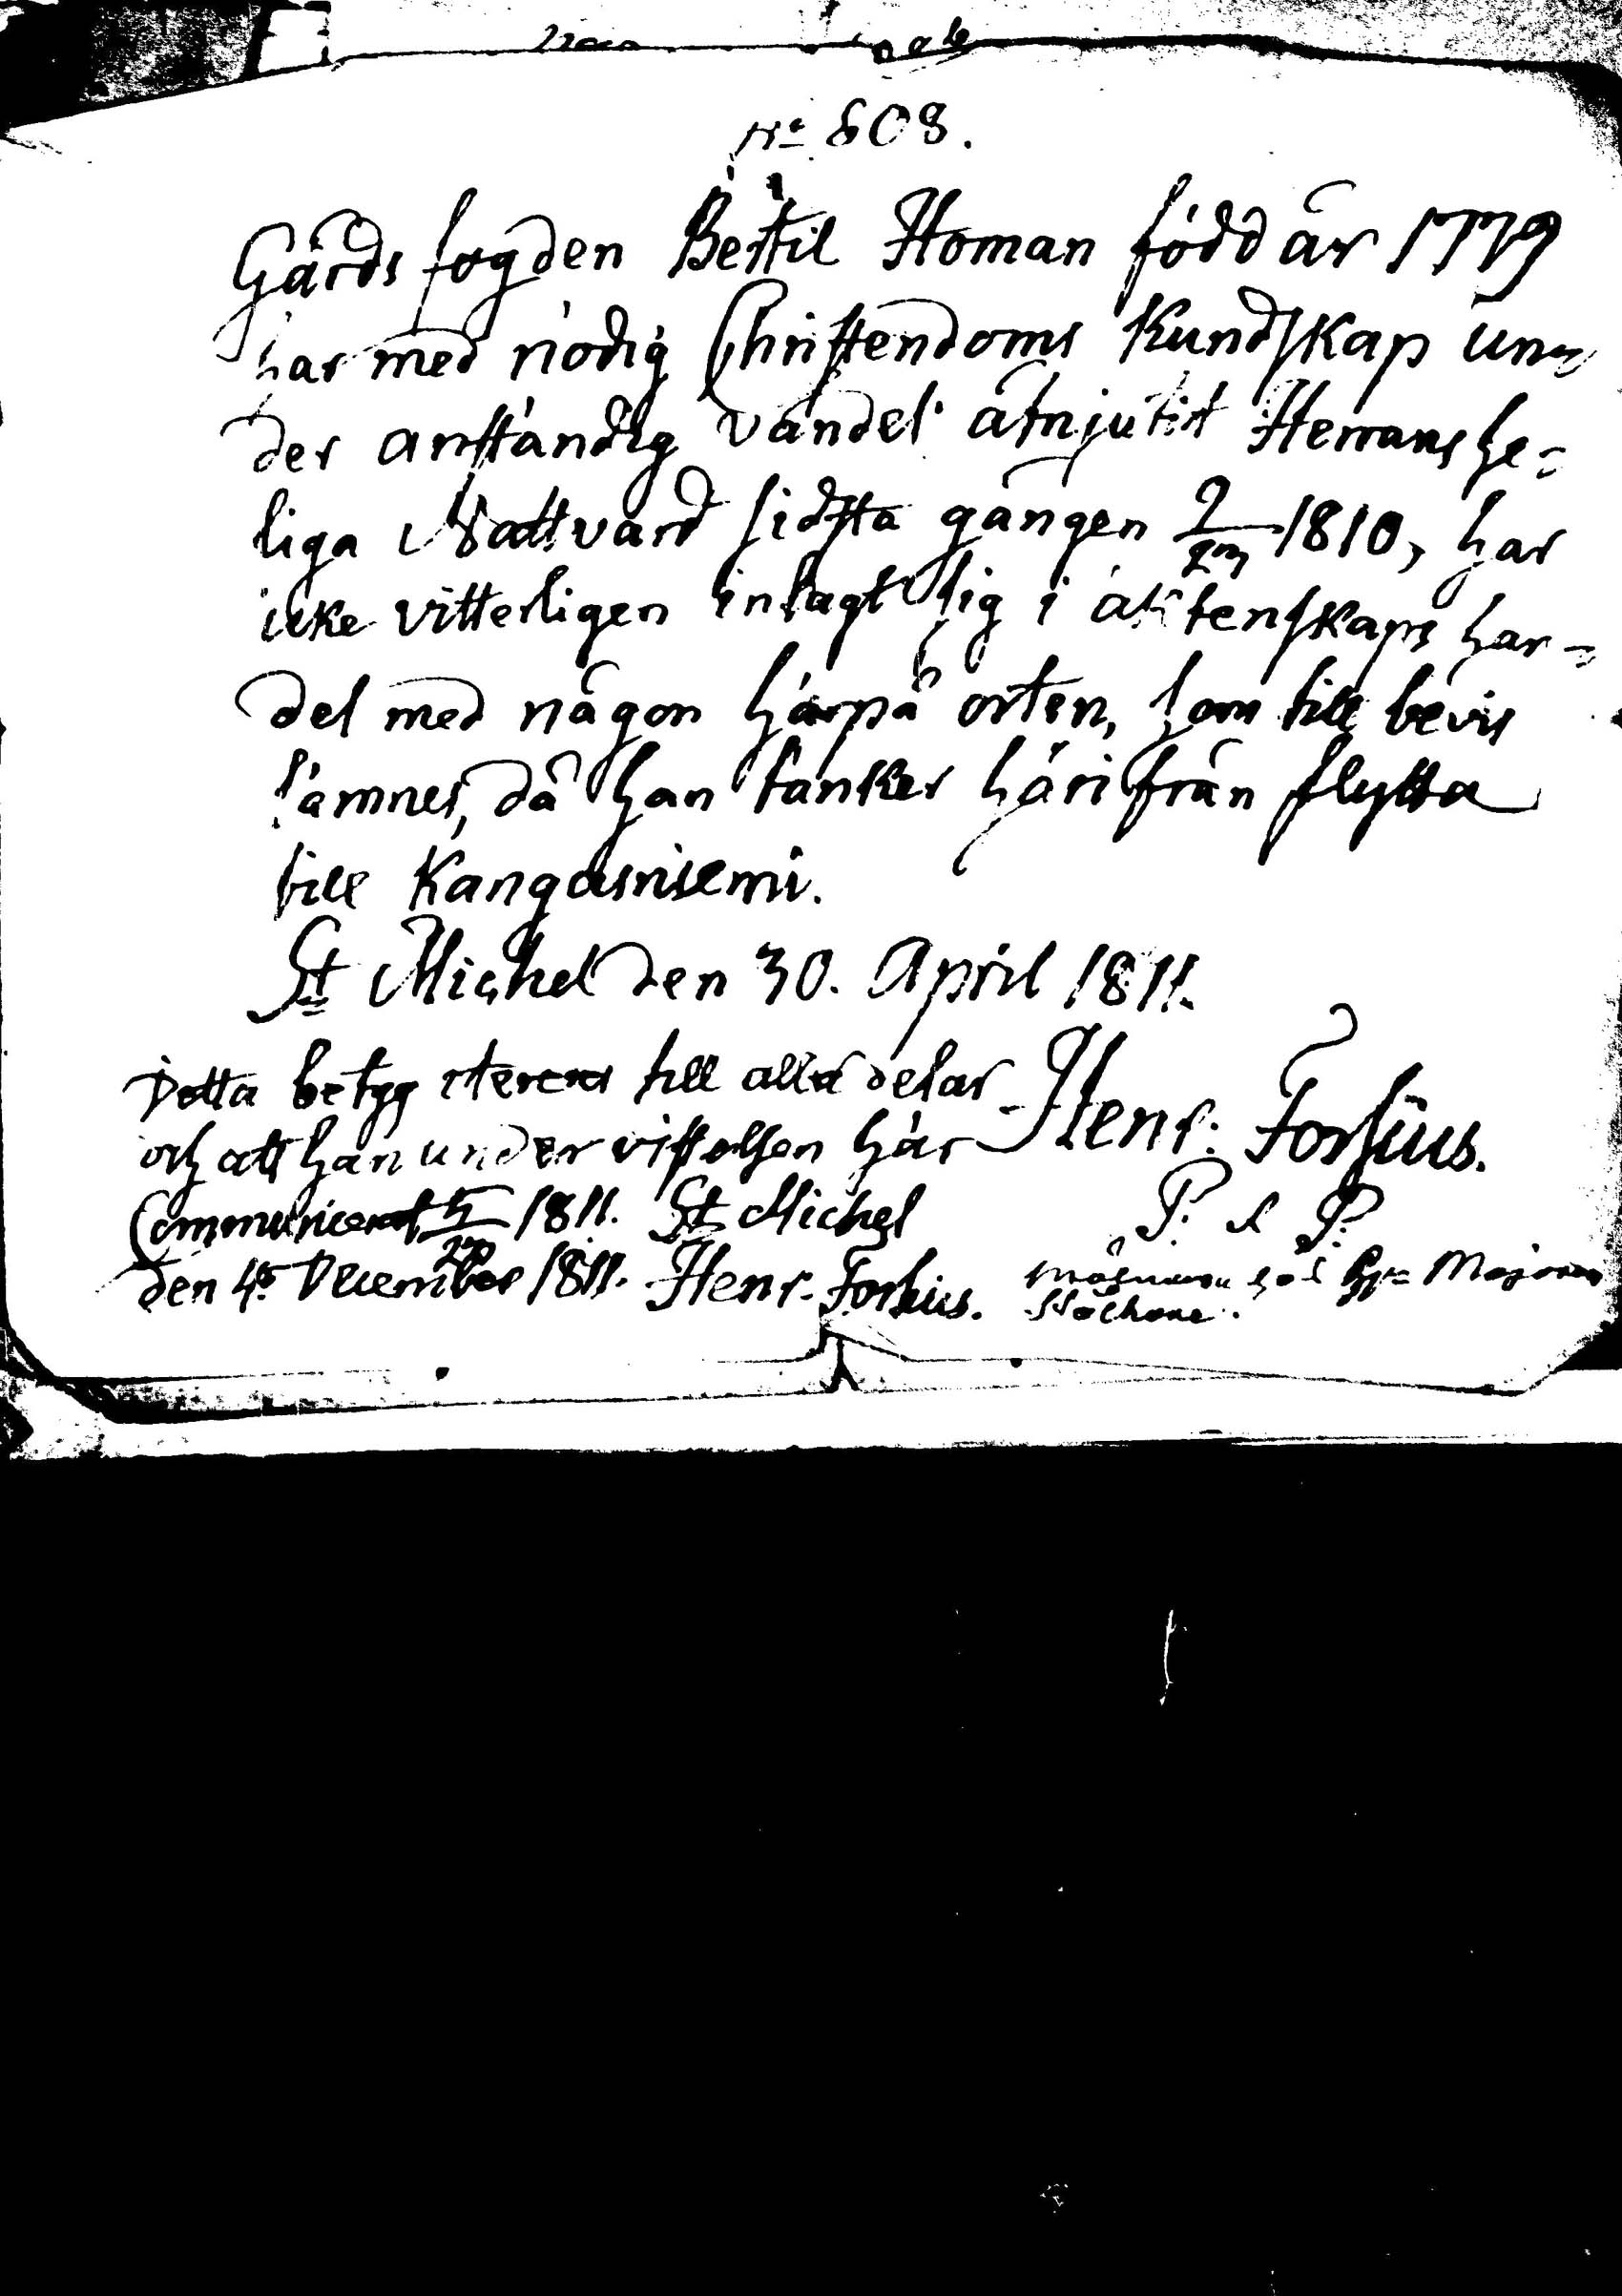 No 608.
Gårds fogden Bertil Homan född år 1779
har med nödig Christendoms Kundskap un=
der anständig vandel åtnjutit Herrans he=
liga Nattvard sidsta gången 1810, har
icke vitterligen inlagt sig i äktenskaps han=
del med någon härpå orten, som till bevis
lämnes, då han tänker härifrån flytta
till Kangasniemi.
St Michel den 30. April 1811.
Henr: Forsius.
P. & P.
Detta betyg itereras till alla delar
och att han under vistelsen här
Communicerat 1811. St Michel
den 4. December 1811. Henr. Forsius.
hos Majoren